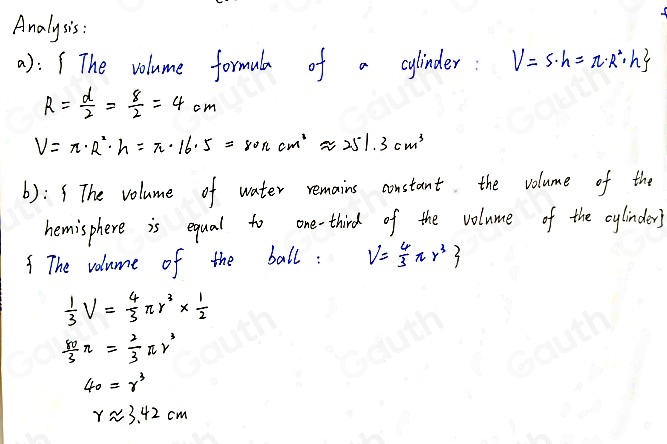 Analysis:
a): { The volume formula of a cylinder : V = S·h = π·R²·h}
R = d/2 = 8/2 = 4 cm
V = π·R²·h = π·16·5 = 80π cm³ ≈ 251.3 cm³
b): { The volume of water remains constant. the volume of the
hemisphere is equal to one-third of the volume of the cylinder}
{ The volume of the ball : V = 4/3 π r³ }
1/3 V = 4/3 π r³ × 1/2
80/3 π = 2/3 π r³
40 = r³
r ≈ 3.42 cm